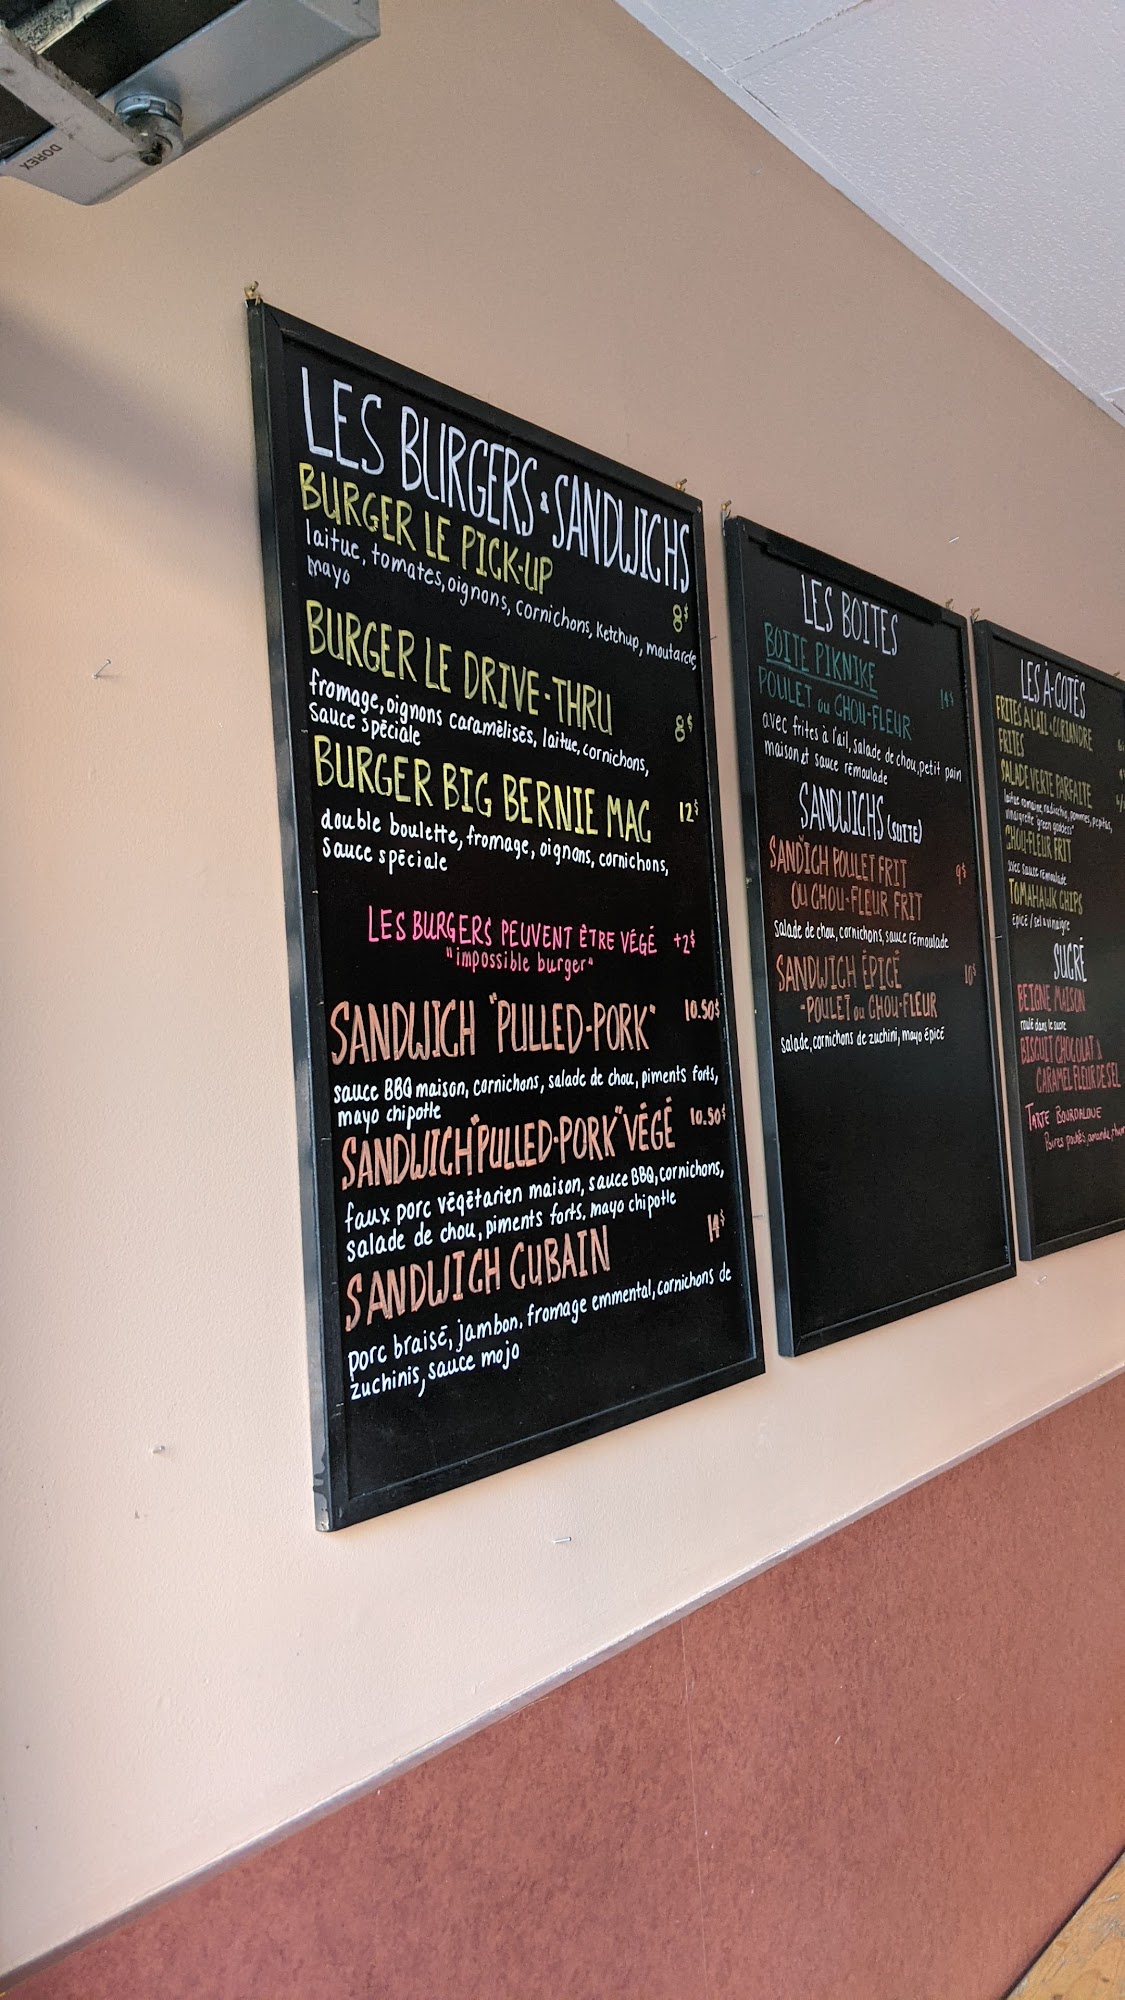 DOREX
LES BURGERS & SANDWICHS
BURGER LE PICK-UP
8$
laitue, tomates, oignons, cornichons, ketchup, moutarde,
mayo
BURGER LE DRIVE-THRU
8$
fromage, oignons caramélisés, laitue, cornichons,
sauce spéciale
BURGER BIG BERNIE MAC 12$
double boulette, fromage, oignons, cornichons,
sauce spéciale
LES BURGERS PEUVENT ÊTRE VÉGÉ +2$
"impossible burger"
SANDWICH "PULLED-PORK" 10.50$
sauce BBQ maison, cornichons, salade de chou, piments forts,
mayo chipotle
SANDWICH "PULLED-PORK" VÉGÉ 10.50$
faux porc végétarien maison, sauce BBQ, cornichons,
salade de chou, piments forts, mayo chipotle
SANDWICH CUBAIN 14$
porc braisé, jambon, fromage emmental, cornichons de
zuchinis, sauce mojo
LES BOITES
BOITE PIKNIKE
14$
POULET ou CHOU-FLEUR
avec frites à l'ail, salade de chou, petit pain
maison et sauce rémoulade
SANDWICHS (SUITE)
SANDICH POULET FRIT 9$
OU CHOU-FLEUR FRIT
salade de chou, cornichons, sauce rémoulade
SANDWICH ÉPICÉ 10$
-POULET ou CHOU-FLEUR
salade, cornichons de zuchini, mayo épicé
LES À-CÔTÉS
FRITES À L'AIL & CORIANDRE
FRITES
SALADE VERTE PARFAITE
laitue romaine, radicchio, pommes, pepitas,
vinaigrette "green goddess"
CHOU-FLEUR FRIT
avec sauce rémoulade
TOMAHAWK CHIPS
épicé / sel & vinaigre
SUCRÉ
BEIGNE MAISON
roulé dans le sucre
BISCUIT CHOCOLAT &
CARAMEL FLEUR DE SEL
TARTE BOURDALOUE
Poires pochés, amande, thym